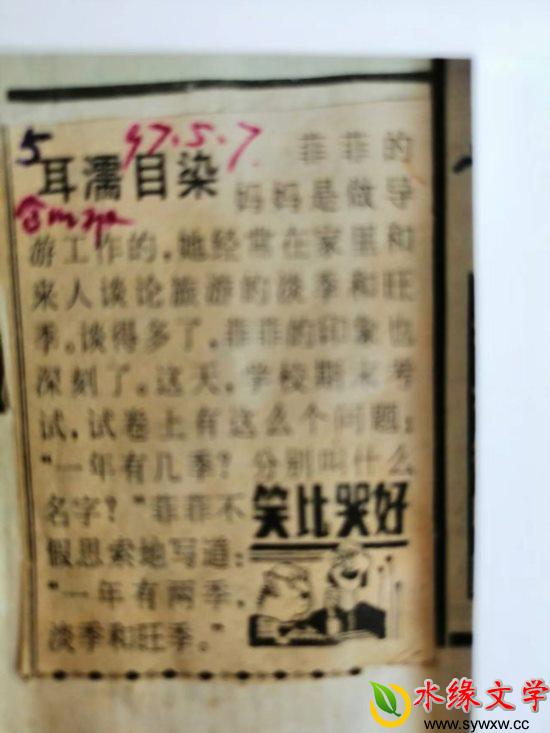 5
97.5.7.
耳濡目染
菲菲的
妈妈是做导
游工作的,她经常在家里和
来人谈论旅游的淡季和旺
季。谈得多了,菲菲的印象也
深刻了。这天,学校期末考
试,试卷上有这么个问题:
“一年有几季?分别叫什么
名字?”菲菲不
假思索地写道:
“一年有两季,
淡季和旺季。”
笑比哭好
水缘文学
www.sywxw.cc